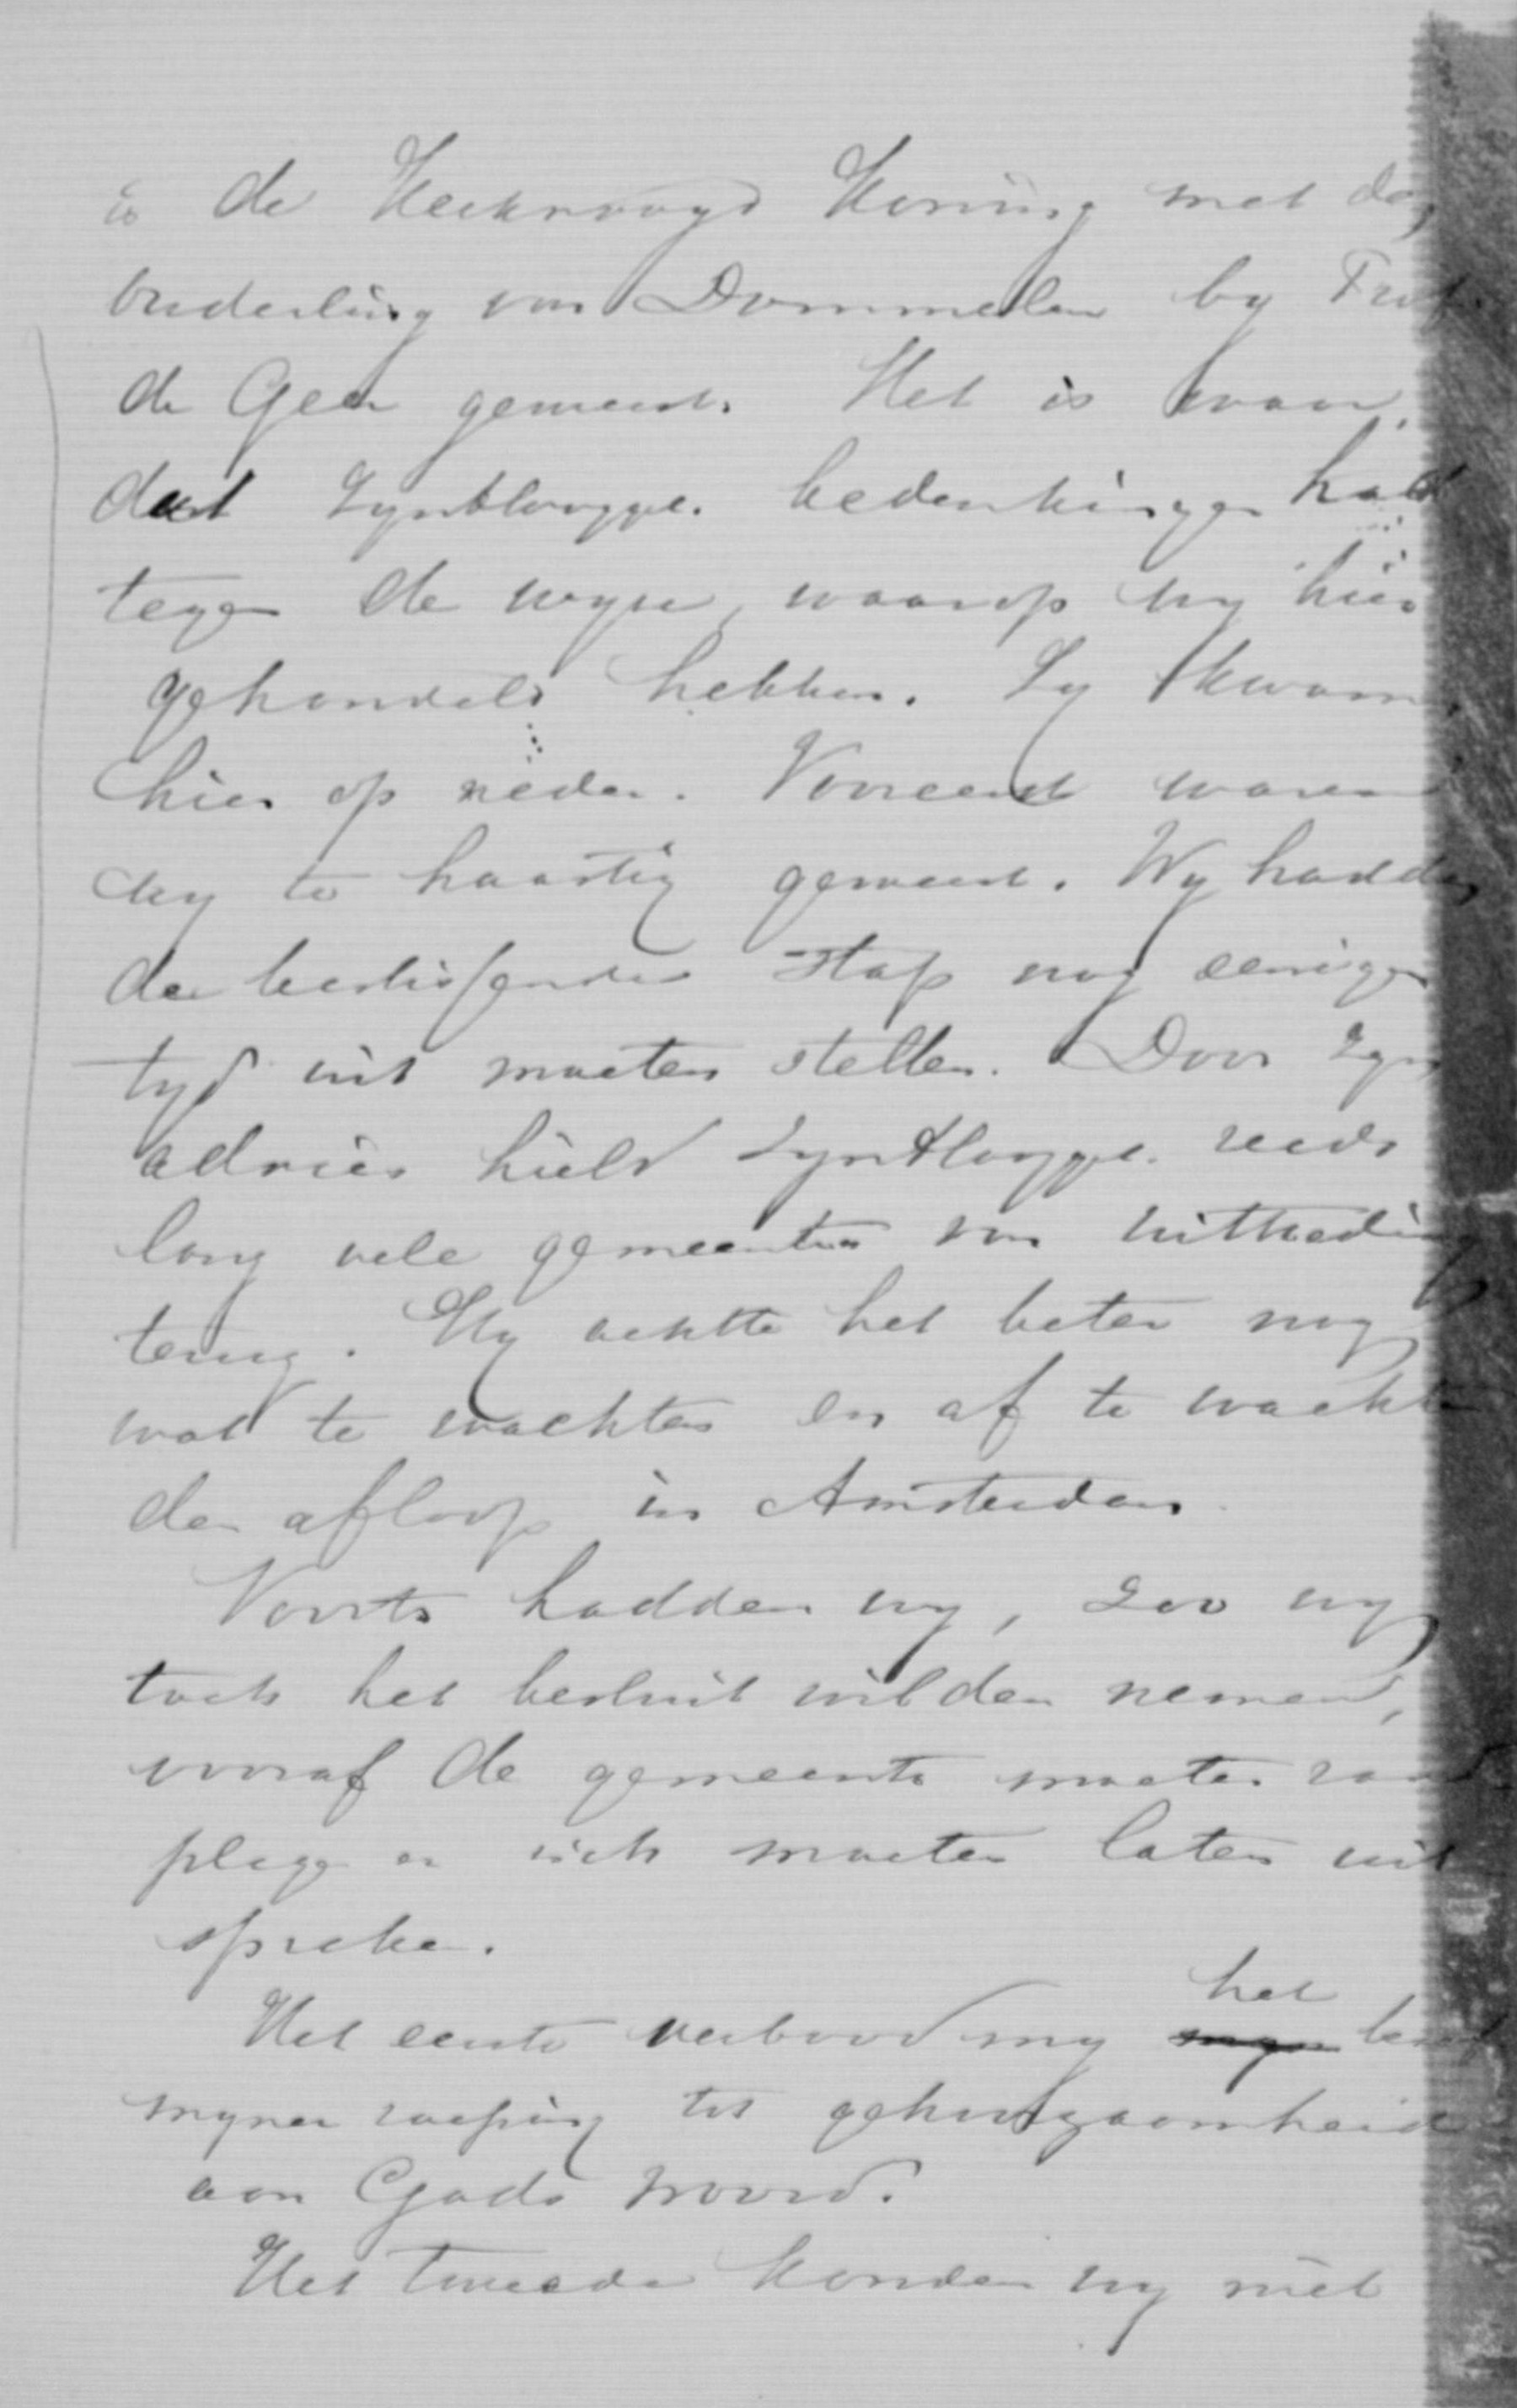 is de Kerkvoogd Koning met den
ouderling van Dommelen by Prof.
de Geer geweest. Het is waar,
dat ZynHoogge. bedenkingen had
tegen de wyze, waarop wy hier
gehandeld hebben. Zy kwamen
hier op neder. Vooreerst waren
wy te haastig geweest. Wy hadden
den beslissenden stap nog eenigen
tyd uit moeten stellen. Door Zyn
advies hield ZynHoogge. reeds
lang vele gemeenten van uittreding
terug. Hy achtte het beter nog
wat te wachten en af te wachten
den afloop in Amsterdam.
Voorts hadden wy, zoo wy
toch het besluit wilden nemen,
vooraf de gemeente moeten raad-
plegen en zich moeten laten uit
spreken.
Het eerste verbood my het
myner roeping tot gehoorzaamheid
aan Gods woord.
Het tweede konden wy niet